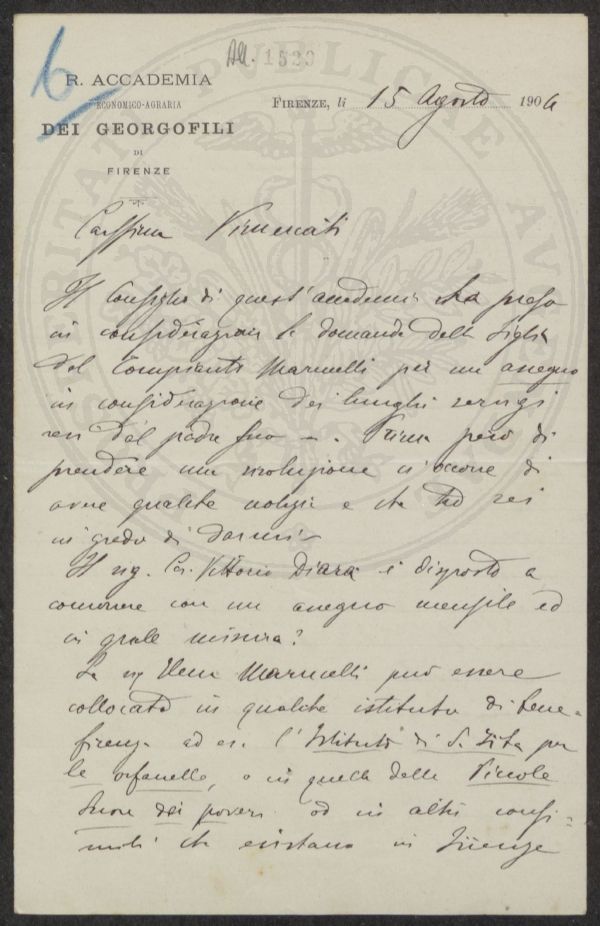 6
All. 1520
R. ACCADEMIA
ECONOMICO-AGRARIA
DEI GEORGOFILI
DI
FIRENZE
FIRENZE, li 15 Agosto 1904
Carissimo Vimercati
Il Consiglio di quest'accademia ha preso
in considerazione la domanda della figlia
del Compianto Marucelli per un assegno
in considerazione dei lunghi servizi
resi dal padre suo —. Prima però di
prendere una risoluzione ci occorre di
avere qualche notizia e che tu sei
in grado di darmi —
Il sig. Cr. Vittorio è disposto a
concorrere con un assegno mensile ed
in quale misura?
La sig Elena Marucelli può essere
collocata in qualche istituto di bene-
ficenza ad es. l'Istituto di S. Zita per
le orfanelle, o in quello delle Piccole
Suore dei poveri od in altri consi-
mili che esistano in Firenze